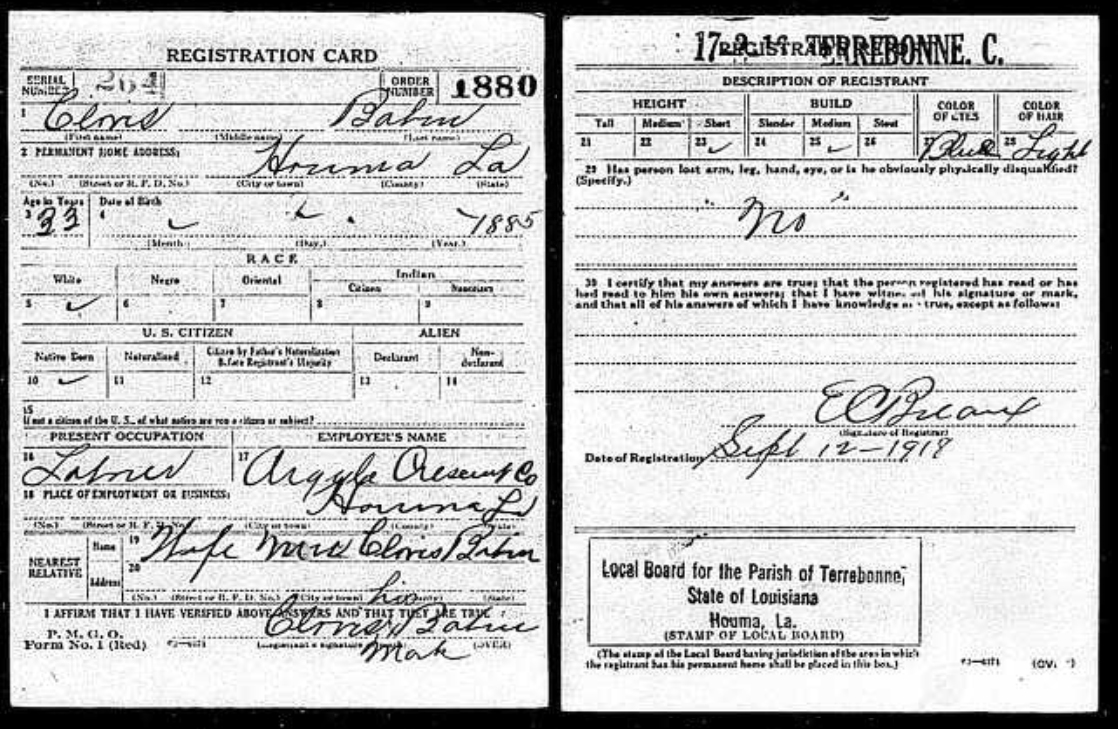 REGISTRATION CARD
SERIAL NUMBER 264 ORDER NUMBER 1880
1 Clovis Babin
(First name) (Middle name) (Last name)
2 PERMANENT HOME ADDRESS:
Houma La
(No.) (Street or R. F. D. No.) (City or town) (County) (State)
Age in Years Date of Birth
3 33 4 1885
(Month) (Day) (Year)
RACE
White Negro Oriental Indian
Citizen Noncitizen
5 ✓ 6 7 8 9
U. S. CITIZEN ALIEN
Native Born Naturalized Citizen by Father's Naturalization Before Registrant's Majority Declarant Non-declarant
10 ✓ 11 12 13 14
15
If not a citizen of the U. S., of what nation are you a citizen or subject?
PRESENT OCCUPATION EMPLOYER'S NAME
16 Laborer 17 Argyle Crescent Co
18 PLACE OF EMPLOYMENT OR BUSINESS:
Houma La
(No.) (Street or R. F. D. No.) (City or town) (County) (State)
NEAREST RELATIVE Name 19 Wife Mrs Clovis Babin
Address 20
(No.) (Street or R. F. D. No.) (City or town) (County) (State)
I AFFIRM THAT I HAVE VERIFIED ABOVE ANSWERS AND THAT THEY ARE TRUE
his
Clovis X Babin
Mark
P. M. G. O.
Form No. 1 (Red) (Registrant's signature or mark) (OVER)
17-2-17 TERREBONNE. C.
REGISTRAR'S REPORT
DESCRIPTION OF REGISTRANT
HEIGHT BUILD COLOR OF EYES COLOR OF HAIR
Tall Medium Short Slender Medium Stout
21 22 23 ✓ 24 25 ✓ 26 27 Blue 28 Light
29 Has person lost arm, leg, hand, eye, or is he obviously physically disqualified?
(Specify.)
"No"
30 I certify that my answers are true; that the person registered has read or has
had read to him his own answers; that I have witnessed his signature or mark,
and that all of his answers of which I have knowledge are true, except as follows:
E C Breaux
(Signature of Registrar)
Date of Registration Sept 12-1918
Local Board for the Parish of Terrebonne,
State of Louisiana
Houma, La.
(STAMP OF LOCAL BOARD)
(The stamp of the Local Board having jurisdiction of the area in which
the registrant has his permanent home shall be placed in this box.)
(OVER)